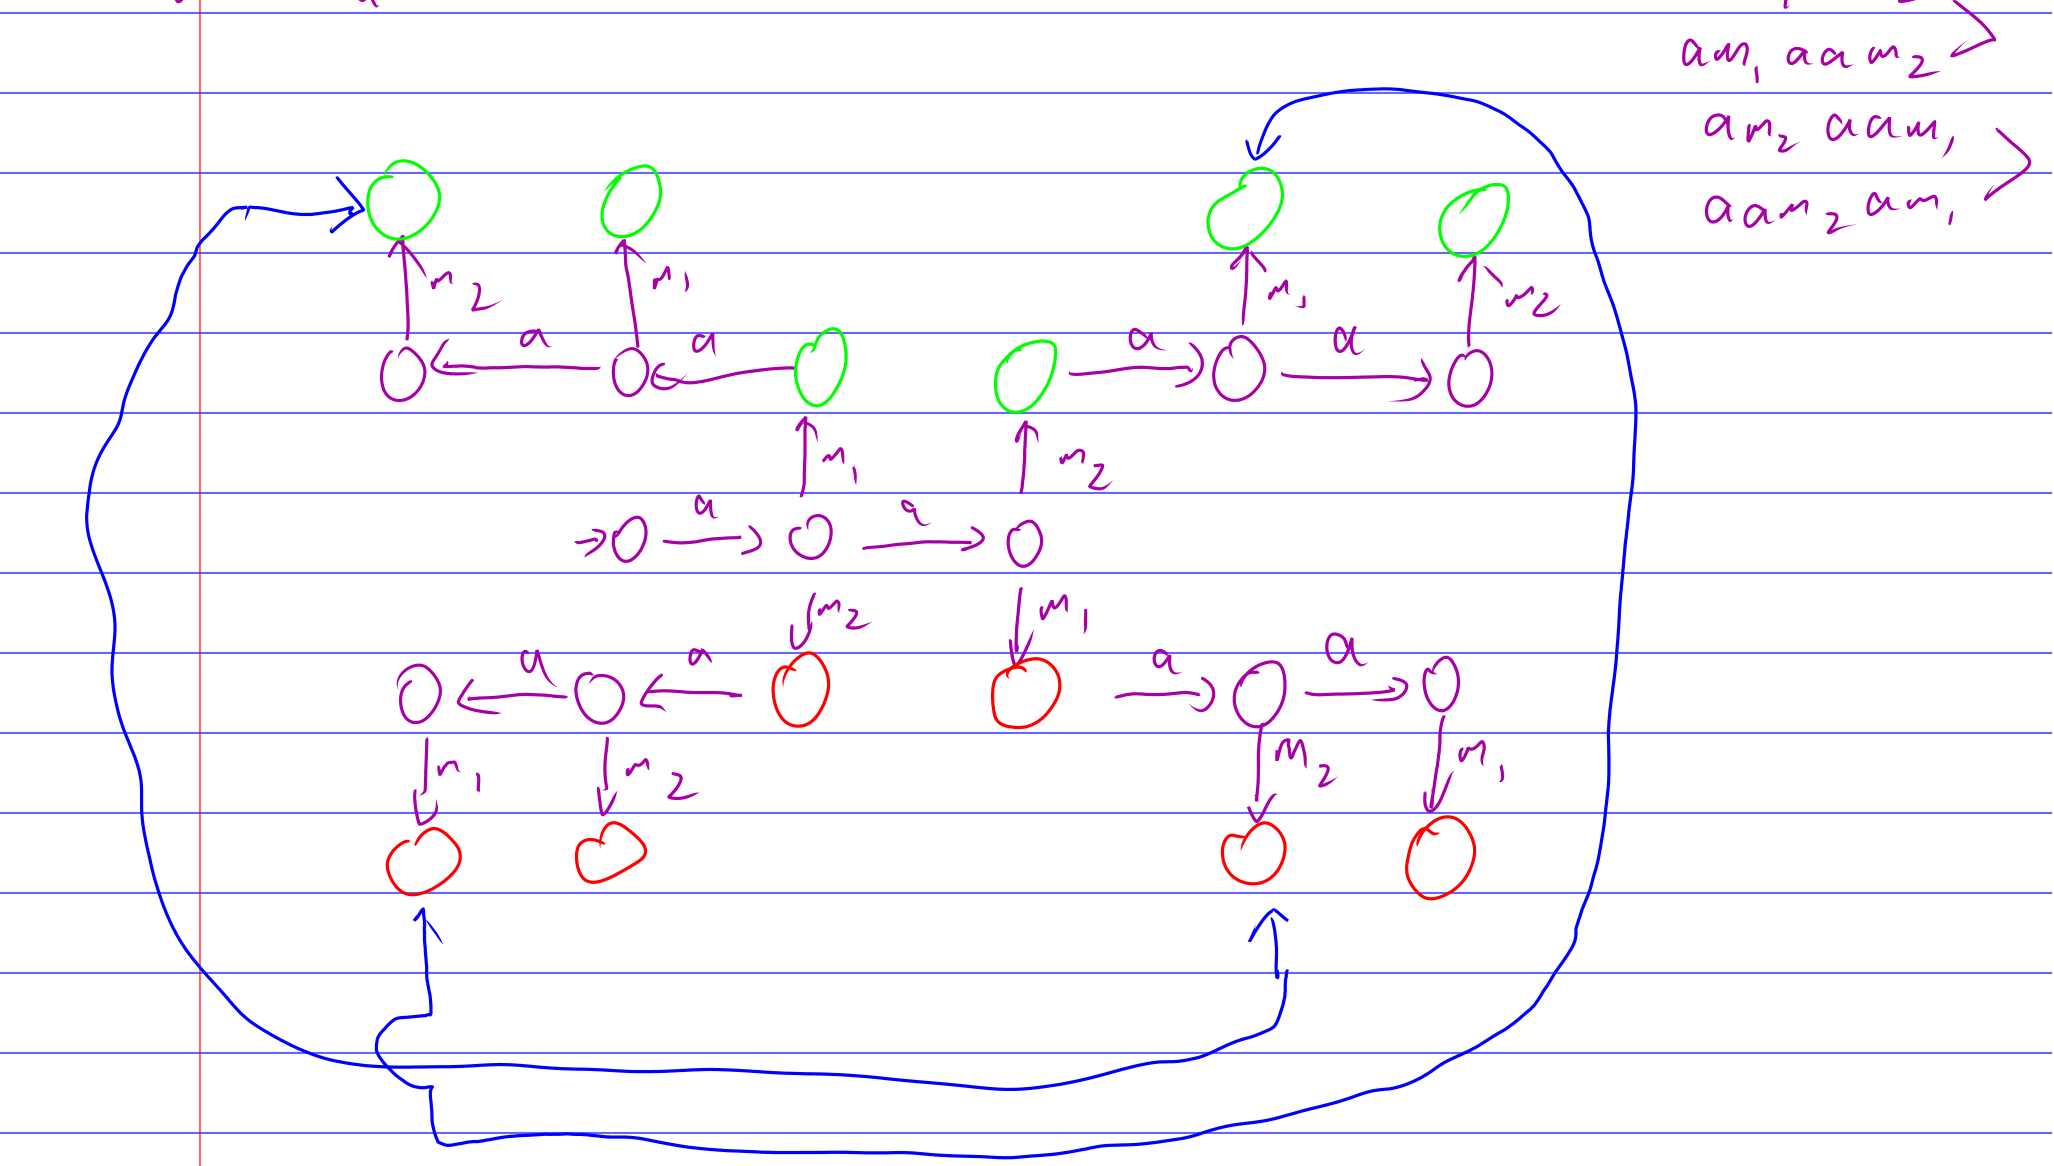 am₁ aam₂
am₂ aam₁
aam₂ am₁
m₂ m₁ m₁ m₂
a a a a
m₁ m₂
a a
m₂ m₁
a a a a
m₁ m₂ m₂ m₁